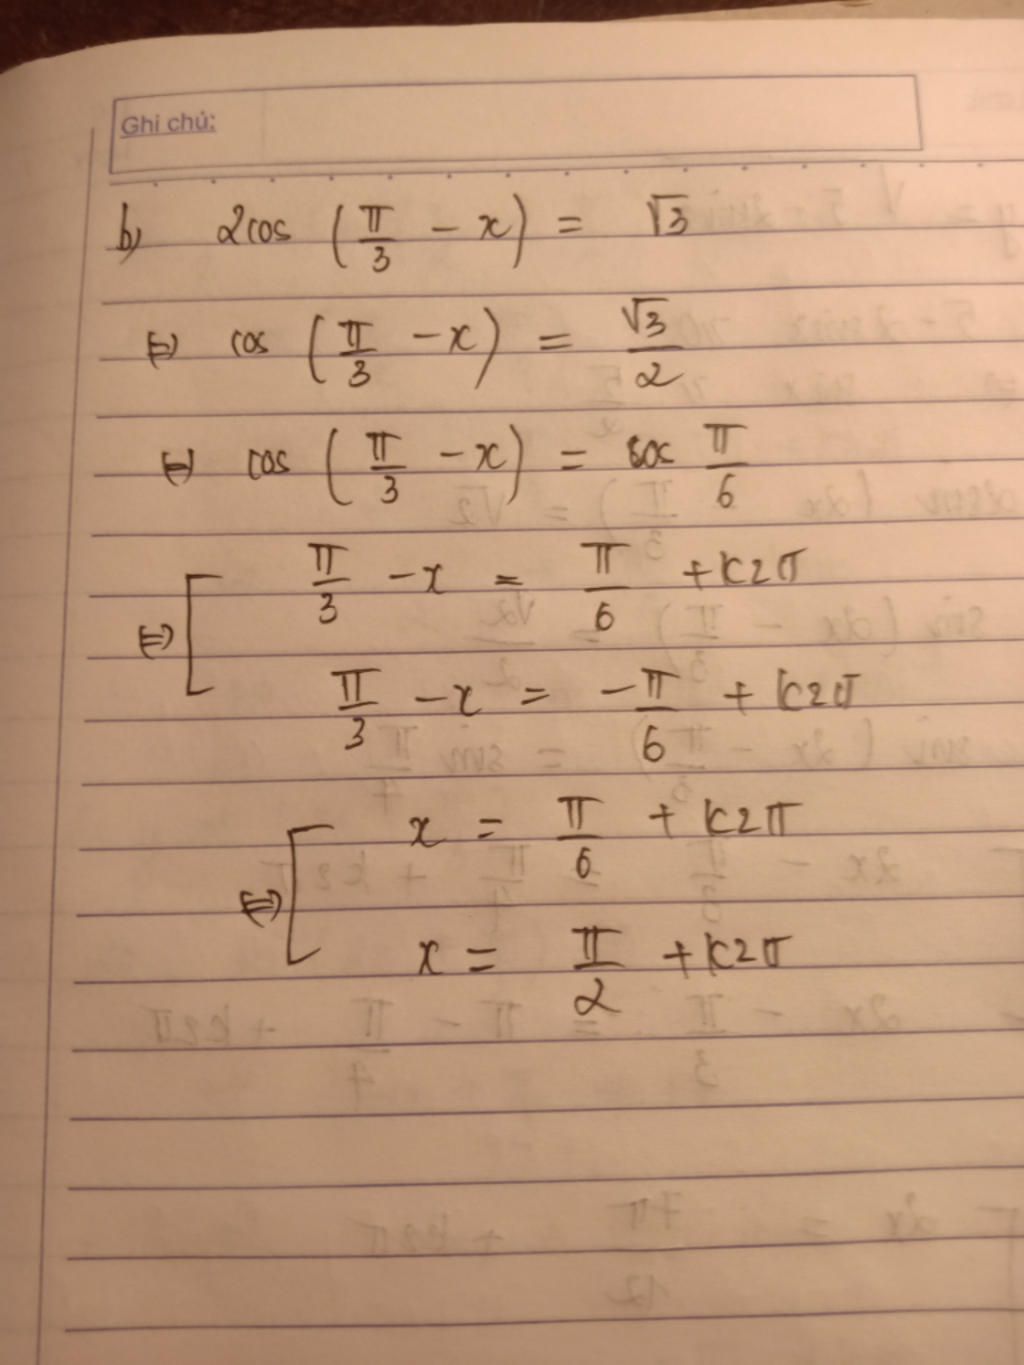 Ghi chú:
b) 2cos (π/3 − x) = √3
⇔ cos (π/3 − x) = √3/2
⇔ cos (π/3 − x) = cos π/6
⇔ [ π/3 − x = π/6 + k2π
π/3 − x = −π/6 + k2π
⇔ [ x = π/6 + k2π
x = π/2 + k2π